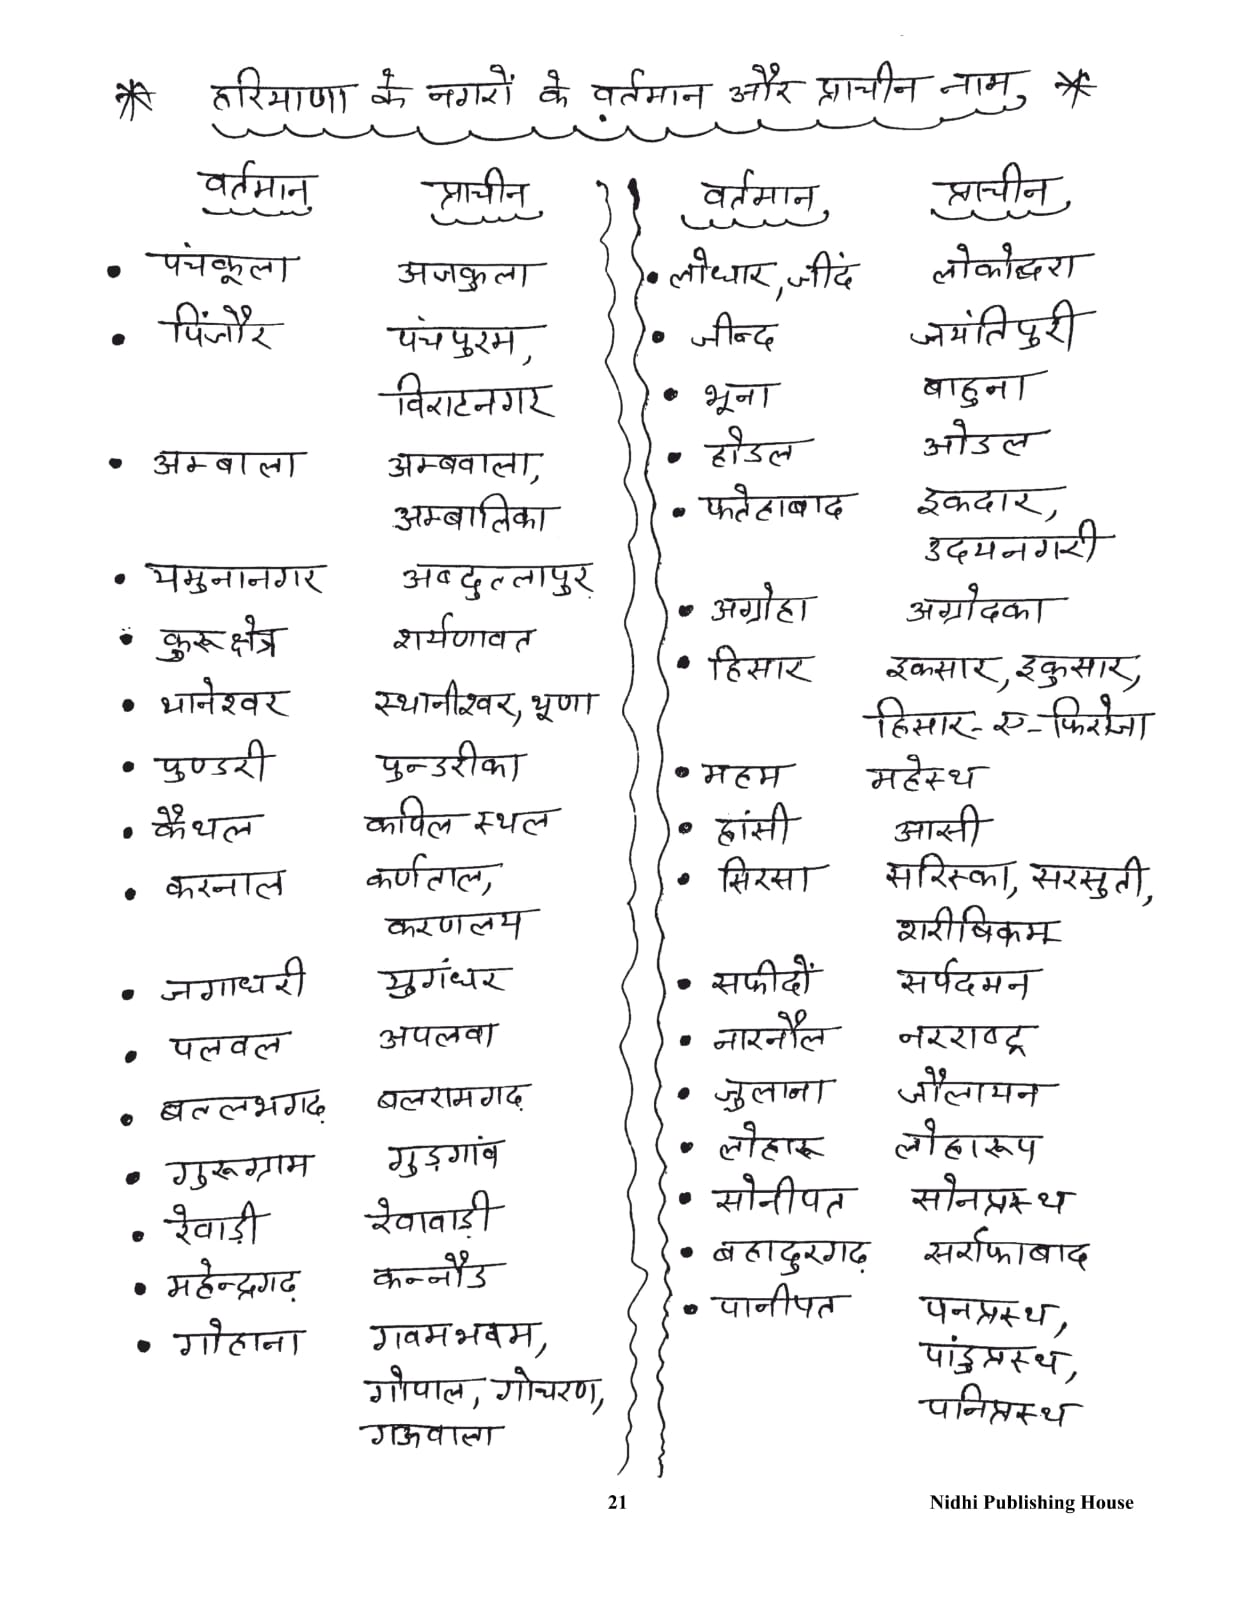 * हरियाणा के नगरों के वर्तमान और प्राचीन नाम *
वर्तमान प्राचीन
• पंचकूला अजकुला
• पिंजौर पंचपुरम,
विराटनगर
• अम्बाला अम्बवाला,
अम्बालिका
• यमुनानगर अब्दुल्लापुर
• कुरूक्षेत्र शर्यणावत
• थानेश्वर स्थानीश्वर, थूणा
• पुण्डरी पुन्डरीका
• कैथल कपिल स्थल
• करनाल कर्णताल,
करणलय
• जगाधरी युगंधर
• पलवल अपलवा
• बल्लभगढ़ बलरामगढ़
• गुरूग्राम गुड़गांव
• रेवाड़ी रेवावाड़ी
• महेन्द्रगढ़ कन्नौड
• गोहाना गवमभवम,
गोपाल, गोचरण,
गऊवाला
वर्तमान प्राचीन
• लोधार, जींद लोकोद्धरा
• जीन्द जयंतिपुरी
• भूना बाहुना
• होडल ओडल
• फतेहाबाद इकदार,
उदयनगरी
• अग्रोहा अग्रोदका
• हिसार इकसार, इकुसार,
हिसार-ए-फिरोजा
• महम महेस्थ
• हांसी आसी
• सिरसा सरिस्का, सरसुती,
शरीषिकम
• सफीदों सर्पदमन
• नारनौल नरराष्ट्र
• जुलाना जौलायन
• लोहारू लोहारूप
• सोनीपत सोनप्रस्थ
• बहादुरगढ़ सर्राफाबाद
• पानीपत पनप्रस्थ,
पांडुप्रस्थ,
पनिप्रस्थ
21 Nidhi Publishing House